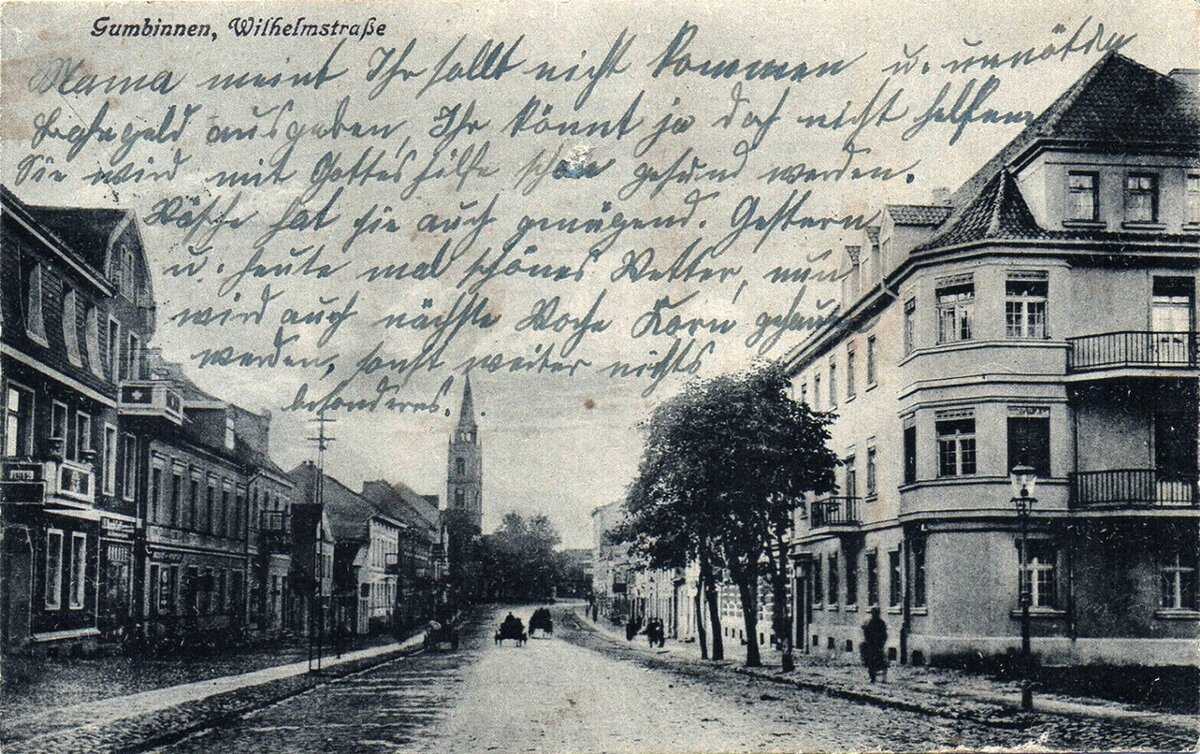 Gumbinnen, Wilhelmstraße
Mama meint Ihr sollt nicht kommen u. unnötig
Fahrgeld ausgeben, Ihr könnt ja doch nicht helfen
Sie wird mit Gottes hilfe schon gesund werden.
Wäsche hat sie auch genügend. Gestern
u. heute mal schönes Wetter, nun
wird auch nächste Woche Korn gehaut
werden, sonst weiter nichts
besonderes.